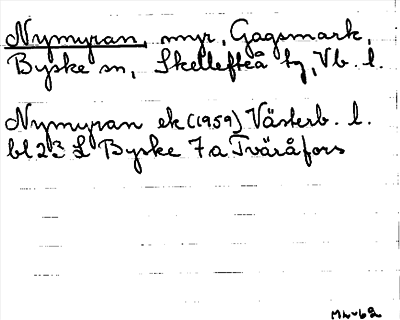 Nymyran, myr, Gagsmark,
Byske sn, Skellefteå tg, Vb. l.
Nymyran ek (1959) Västerb. l.
bl 23 L Byske 7 a Tväråfors